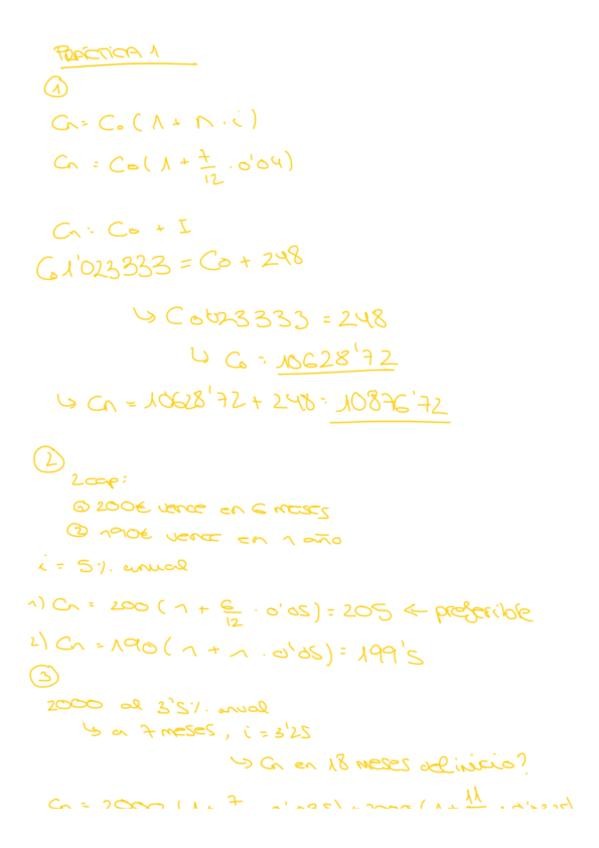 PRÁCTICA 1
①
Cn = Co (1 + n · i)
Cn = Co (1 + 7/12 · 0'04)
Cn = Co + I
Co 1'023333 = Co + 248
↳ Co 0'023333 = 248
↳ Co = 10628'72
↳ Cn = 10628'72 + 248 = 10876'72
②
2 cap:
① 200€ vence en 6 meses
② 190€ vence en 1 año
i = 5% anual
1) Cn = 200 (1 + 6/12 · 0'05) = 205 ← preferible
2) Cn = 190 (1 + 1 · 0'05) = 199'5
③
2000 al 3'5% anual
↳ a 7 meses, i = 3'25
↳ Cn en 18 meses del inicio?
Cn = 2000 (1 + 7